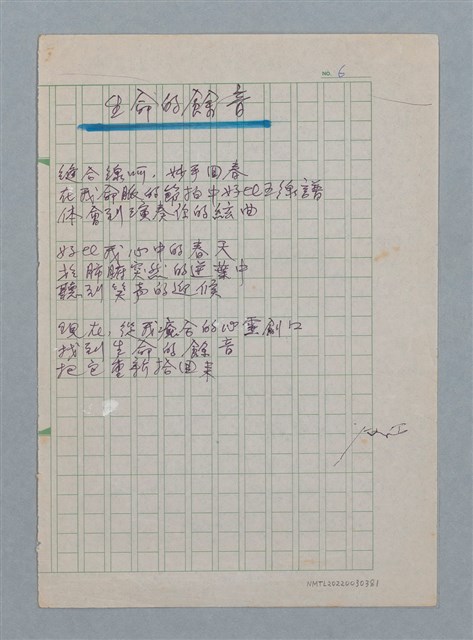 NO. 6
生命的餘音
縫合線呵，妙手回春
在我命脈的節拍中好比五線譜
体會到演奏你的絃曲
好比我心中的春天
於肺腑突然的逆葉中
聽到笑声的迎候
現在，從我癒合的心靈創口
找到生命的餘音
把它重新拾回來
NMTL20220030381